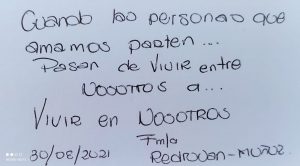 Cuando las personas que
amamos parten...
Pasan de vivir entre
Nosotros a...
Vivir en Nosotros
Fmla
30/08/2021 Redrovan-Muñoz.